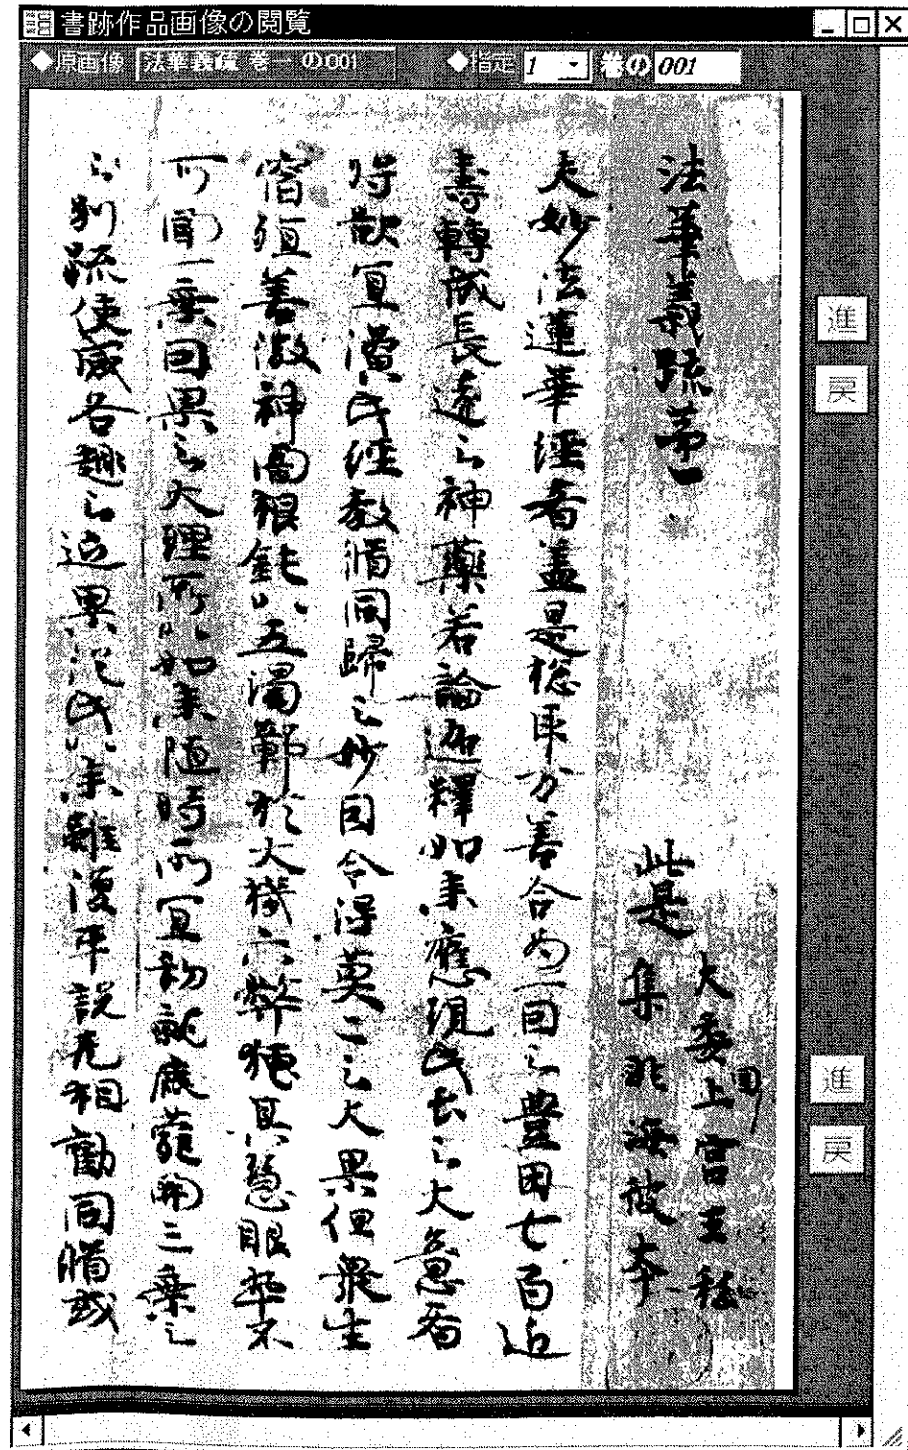 書跡作品画像の閲覧
◆原画像 法華義疏 巻一 の001 ◆指定 1 巻の 001
法華義疏第一
此是
大委国上宮王私
集非海彼本
夫妙法蓮華經者蓋是惣取万善合為一因之豊田七百近
壽轉成長遠之神藥若論迦釋如来應現此土之大意者
将欲宜演此経教脩同歸之妙因令得莫二之大果但衆生
宿殖善微神闇根鈍以五濁鄣於大機六弊掩其慧眼卒不
可聞一乗因果之大理所以如来随時所宜初就鹿苑開三乗之
別疏使感各趣之近果従此以来雖復平説无相勧同脩或
進
戻
進
戻